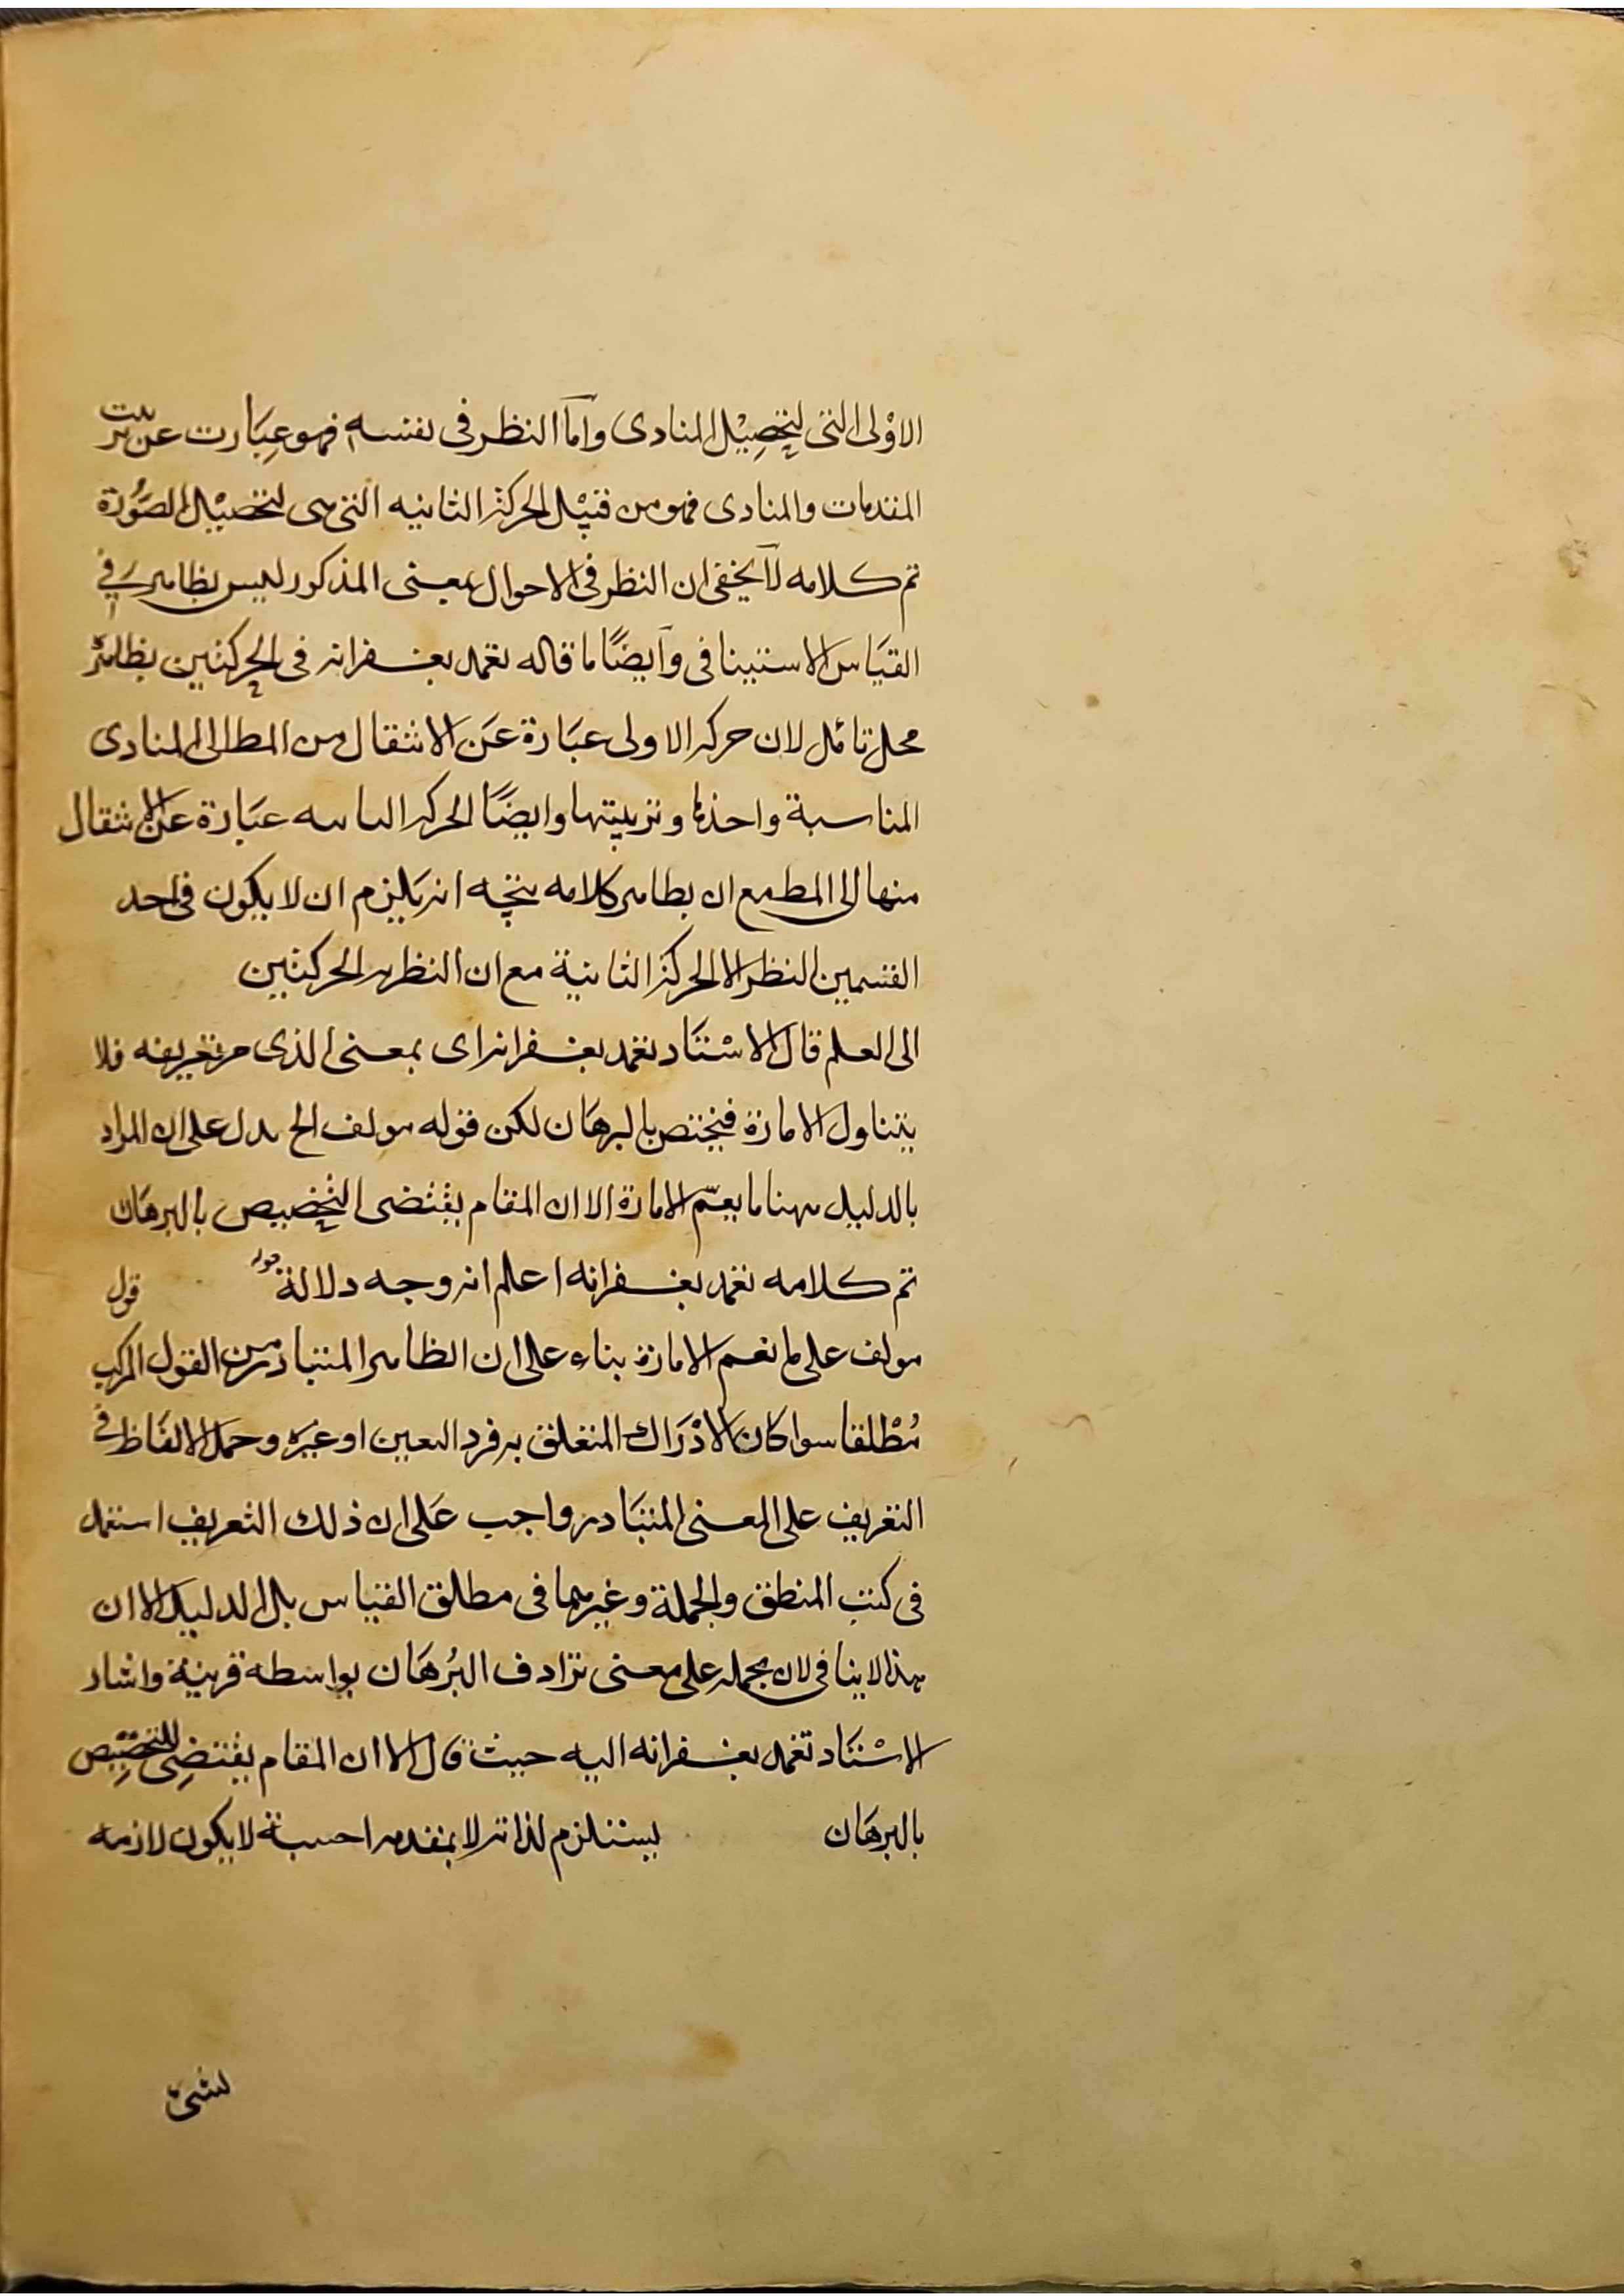 الاوْلى التى لتحصِيْل المبادى وآما النظر فى نفسه فهو عِبَارت عن ترتيب
المقدمات والمبادى فهو من قبيْل الحركة الثانيه التى هى لتحصيْل الصُوْرة
تم كلامه لآ يخفى ان النظر فى الاحوال بمعنى المذكور ليس بظاهر فى
القيَاس الاستينافى وآيضًا ما قاله تغمد بغفرانه فى الحركتين بظاهره
محل تائمل لان حركه الاولى عبَارة عَن الانتقال من المط الى المبادى
المناسبة واخذها وترتيبتها وايضًا الحركه الثانيه عبَارة عن الانتقال
منها الى المط مع ان بظاهر كلامه يتجه انه يَلزم ان لا يكون فى احد
القسمين النظر الا الحركة الثانية مع ان النظر هو الحركتين
الى العلم قال الاسْتَاد تغمد بغفرانه اى بمعنى الذى مر تعريفه فلا
يتناول الامارة فيختص بالبرهَان لكن قوله مولف الخ يدل على ان المراد
بالدليل ههنا ما يعمّ الامارة الا ان المقام يقتضى التخصيص بالبرهَان
تم كلامه تغمد بغفرانه اعلم انه وجه دلالة قوله قول
مولف على ما تعم الامارة بناء على ان الظاهر المتبادر من القول المركب
مُطْلقا سوا كان الادْرَاك المتعلق به فرد اليعين او غيْره وحمل الالفَاظ فى
التعريف على المعنى المتبَادر واجب عَلى ان ذلك التعريف استعمل
فى كتب المنطق والجملة وغيرهما فى مطلق القياس بل الدليل الا ان
هذا لا ينافى لان يحمله على معنى ترادف البُرهَان بواسطه قرينة واشار
الاسْتَاد تغمد بغفرانه اليه حيث قال الا ان المقام يقتضِى التخصِيْص
بالبرهَان يستلزم لذاته لا بمقدمه اجنبية لا يكون لازمه
لشئ